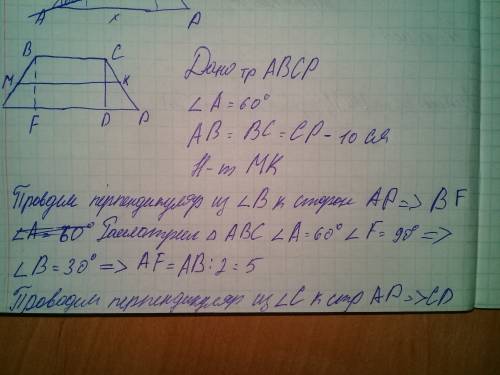 A x P
B C
M K
F D P
Дано тр ABCP
∠A = 60°
AB = BC = CP - 10 см
Н-т MK
Проводим перпендикуляр из ∠B к стороне AP => BF
∠A = 60° Рассмотрим △ ABC ∠A = 60° ∠F = 90° =>
∠B = 30° => AF = AB : 2 = 5
Проводим перпендикуляр из ∠C к стр AP => CD